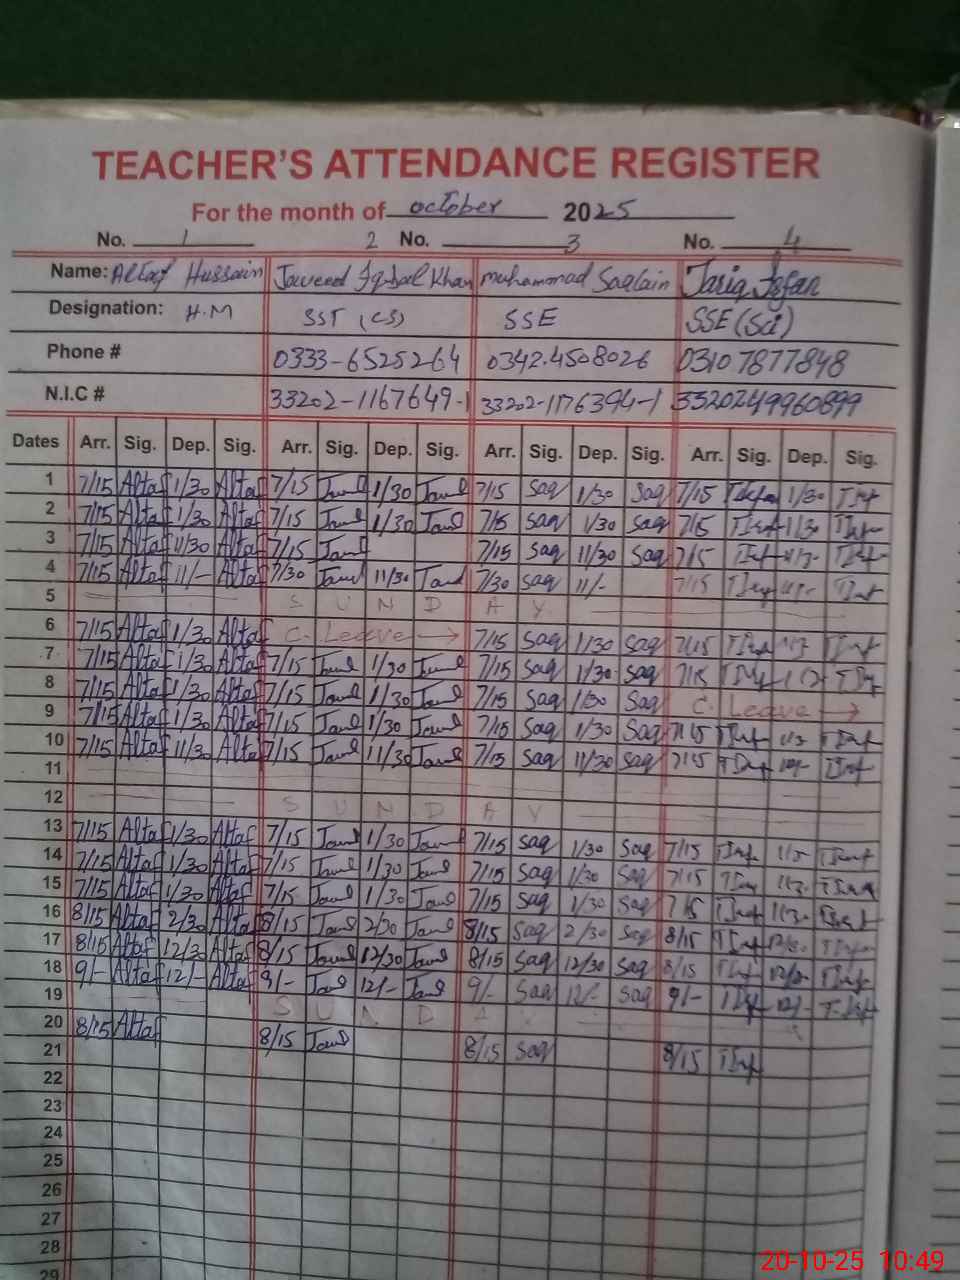 TEACHER'S ATTENDANCE REGISTER
For the month of October 2025
No. 1 2 No. 3 No. 4
Name: Altaf Hussain Javeed Iqbal Khan Muhammad Saqlain Tariq
Designation: H.M SST (CS) SSE SSE (Sci)
Phone # 0333-6525264 0342.4508026 03107877848
N.I.C # 33202-1167649-1 33202-1176394-1 3320249960899
Dates Arr. Sig. Dep. Sig. Arr. Sig. Dep. Sig. Arr. Sig. Dep. Sig. Arr. Sig. Dep. Sig.
1 7/15 Altaf 1/30 Altaf 7/15 1/30 7/15 Saq 1/30 Saq 7/15 1/30
2 7/15 Altaf 1/30 Altaf 7/15 1/30 7/15 Saq 1/30 Saq 7/15 1/30
3 7/15 Altaf 11/30 Altaf 7/15 7/15 Saq 11/30 Saq 7/15
4 7/15 Altaf 11/- Altaf 7/30 11/30 7/30 Saq 11/- 7/15
5 SUNDAY
6 7/15 Altaf 1/30 Altaf C. Leave → 7/15 Saq 1/30 Saq 7/15
7 7/15 Altaf 1/30 Altaf 7/15 1/30 7/15 Saq 1/30 Saq 7/15
8 7/15 Altaf 1/30 Altaf 7/15 1/30 7/15 Saq 1/30 Saq C. Leave →
9 7/15 Altaf 1/30 Altaf 7/15 1/30 7/15 Saq 1/30 Saq 7/15
10 7/15 Altaf 11/30 Altaf 7/15 11/30 7/15 Saq 11/30 Saq 7/15
11
12 SUNDAY
13 7/15 Altaf 1/30 Altaf 7/15 1/30 7/15 Saq 1/30 Saq 7/15
14 7/15 Altaf 1/30 Altaf 7/15 1/30 7/15 Saq 1/30 Saq 7/15
15 7/15 Altaf 1/30 Altaf 7/15 1/30 7/15 Saq 1/30 Saq 7/15
16 8/15 Altaf 2/30 Altaf 8/15 2/30 8/15 Saq 2/30 Saq 8/15
17 8/15 Altaf 12/30 Altaf 8/15 12/30 8/15 Saq 12/30 Saq 8/15
18 9/- Altaf 12/- Altaf 9/- 12/- 9/- Saq 12/- Saq 9/-
19 SUNDAY
20 8/15 Altaf 8/15 8/15 Saq 8/15
21
22
23
24
25
26
27
28
29
20-10-25 10:49